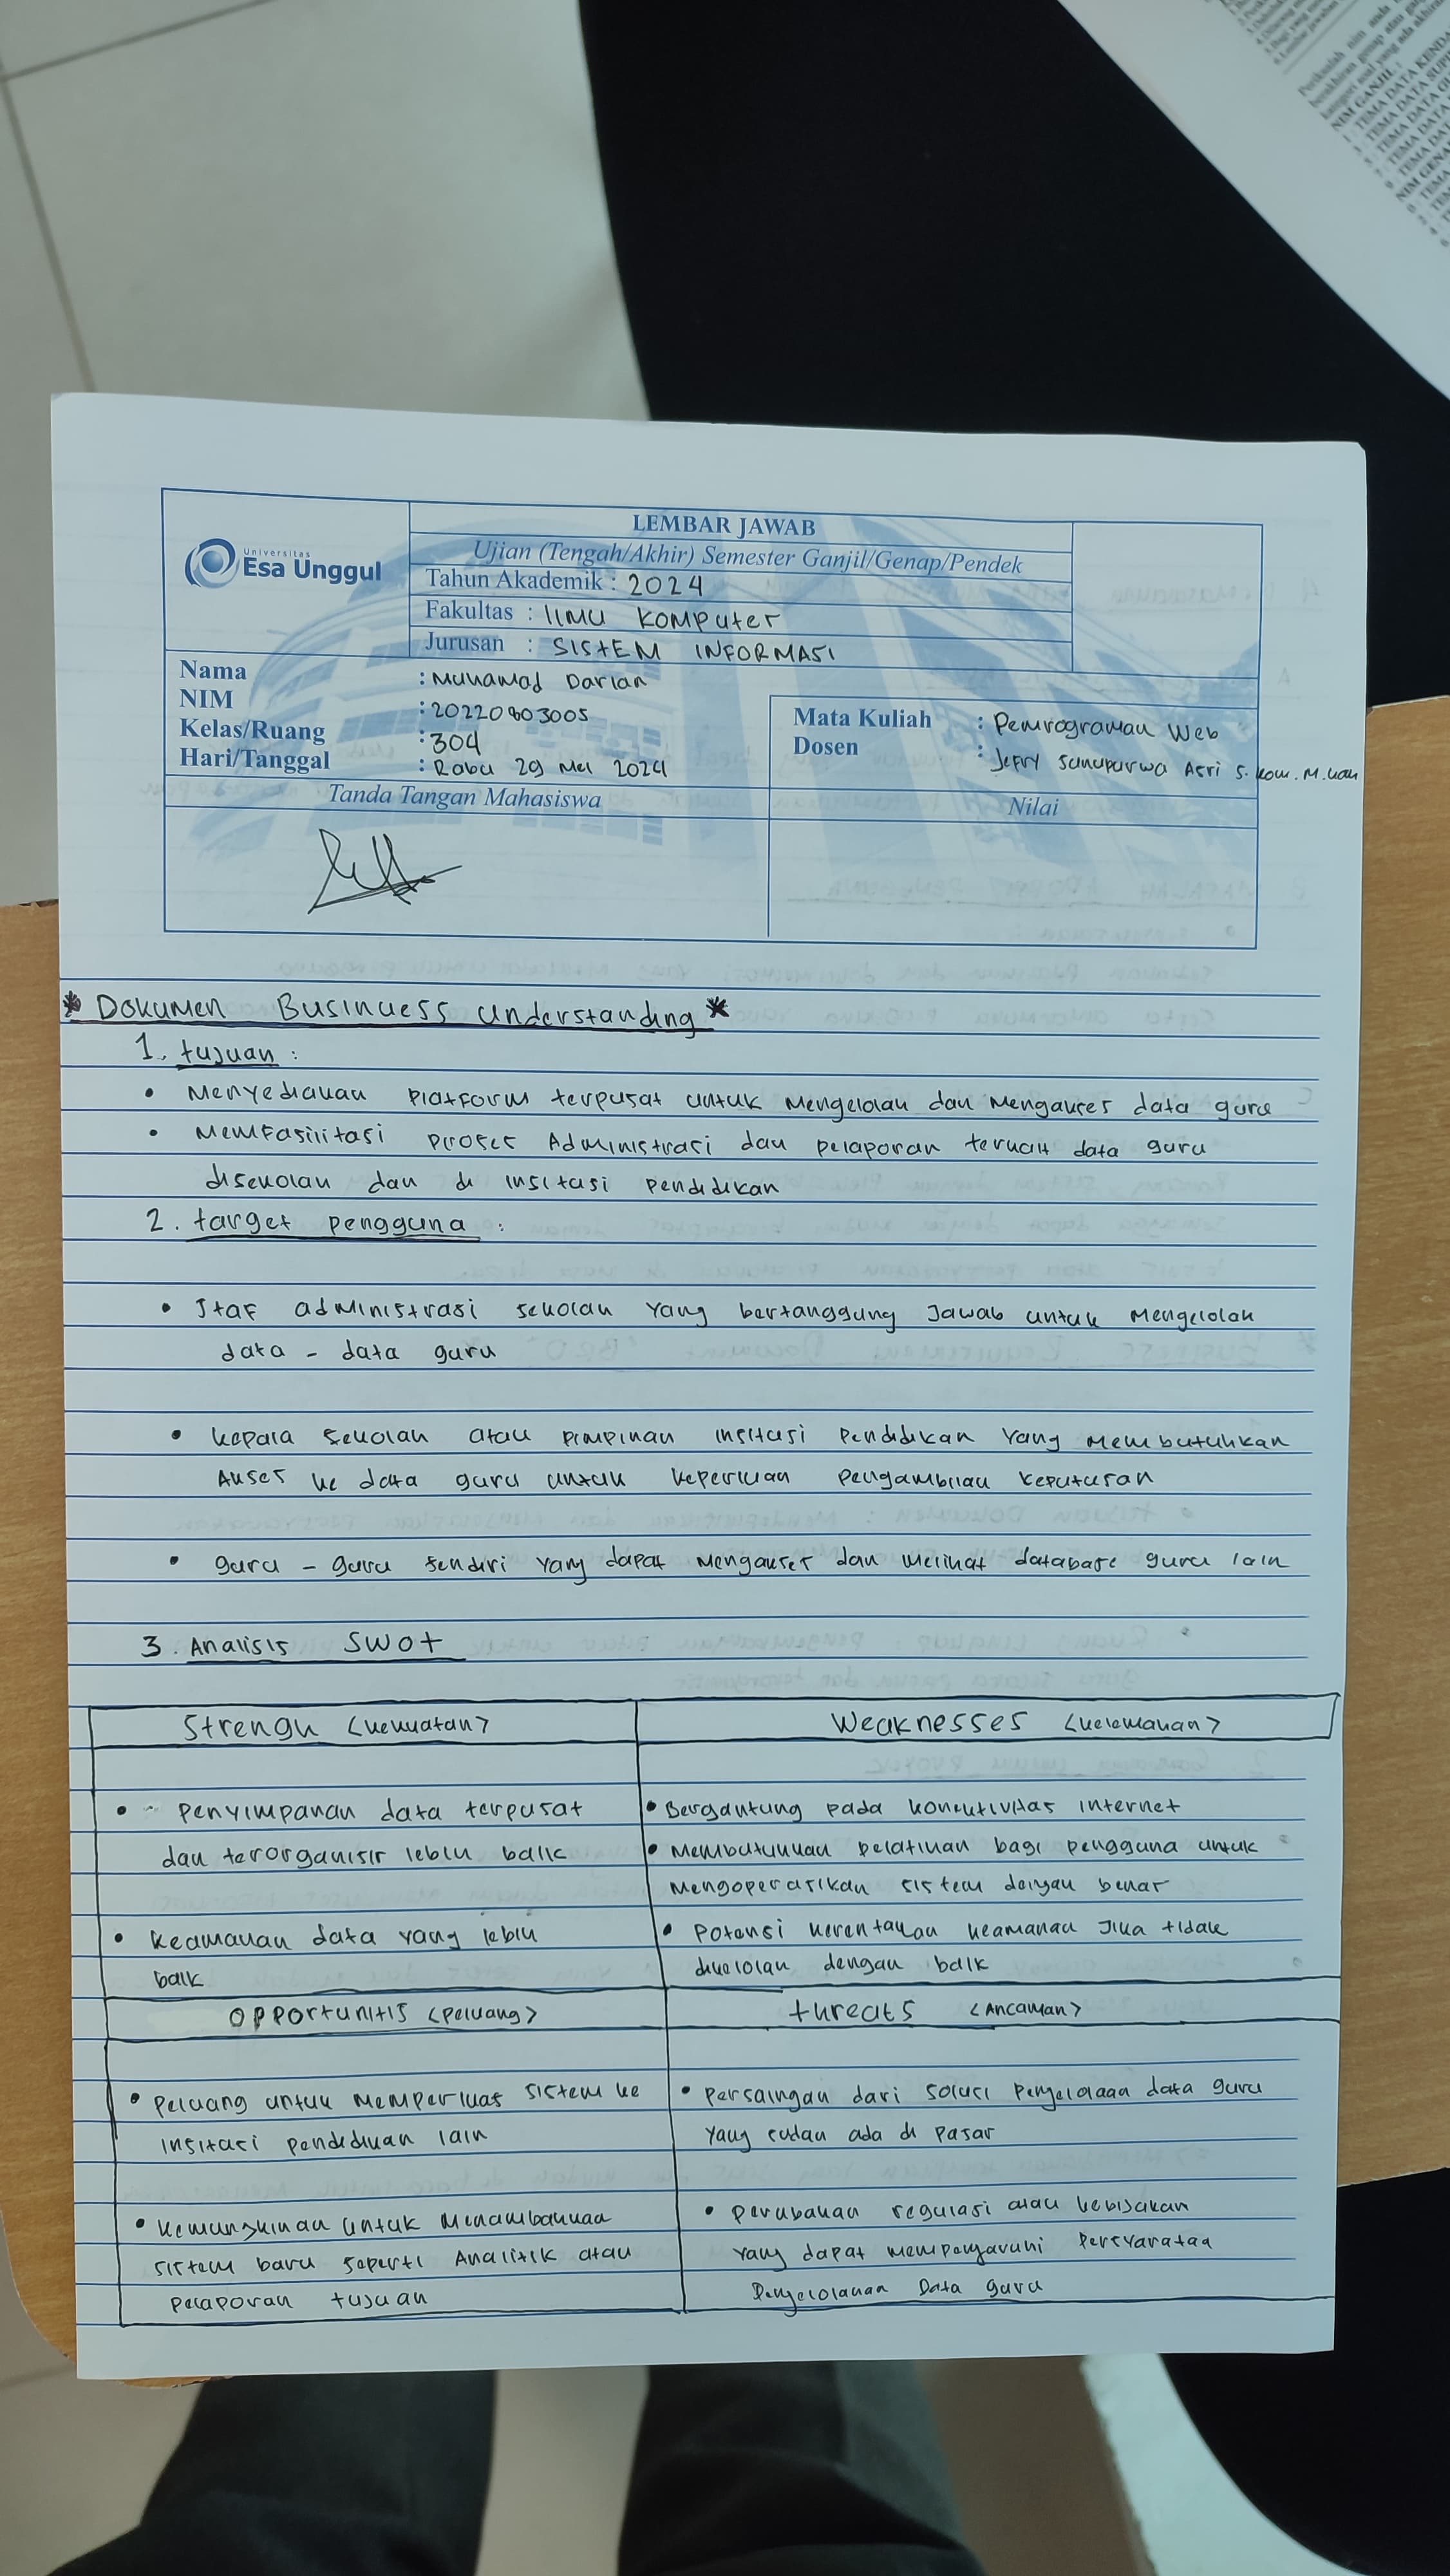 LEMBAR JAWAB
Ujian (Tengah/Akhir) Semester Ganjil/Genap/Pendek
Universitas
Esa Unggul
Tahun Akademik : 2024
Fakultas : ILMU KOMPUTER
Jurusan : SISTEM INFORMASI
Nama : Muhamad Darlan
NIM : 20220803005
Kelas/Ruang : 304
Hari/Tanggal : Rabu 29 Mei 2024
Mata Kuliah : Pemrograman Web
Dosen : Jefry Sunupurwa Asri S.kom.M.kom
Tanda Tangan Mahasiswa
Nilai
* Dokumen Businuess Understanding *
1. tujuan :
• Menyediakan Platform terpusat untuk Mengelolah dan Mengakses data guru
• Memfasilitasi proses Administrasi dan pelaporan terkait data guru
disekolah dan di insitusi pendidikan
2. target pengguna :
• Staf administrasi sekolah yang bertanggung Jawab untuk Mengelolah
data - data guru
• kepala sekolah atau pimpinan insitusi pendidikan yang Membutuhkan
Akses ke data guru untuk keperluan pengambilan keputusan
• guru - guru sendiri yang dapat Mengakses dan melihat database guru lain
3. Analisis SWOT
Strengh <kekuatan>
Weaknesses <kelemahan>
• Penyimpanan data terpusat
dan terorganisir lebih baik
• Keamanan data yang lebih
baik
• Bergantung pada konektivitas internet
• Membutuhkan pelatihan bagi pengguna untuk
Mengoperasikan sistem dengan benar
• Potensi kerentanan keamanan Jika tidak
dikelolah dengan baik
Opportunitis <Peluang>
threats <Ancaman>
• Peluang untuk memperluas sistem ke
insitusi pendidikan lain
• kemungkinan untuk Menambahkan
sistem baru seperti Analitik atau
pelaporan tujuan
• persaingan dari solusi pengelolaan data guru
yang sudah ada di pasar
• perubahan regulasi atau kebijakan
yang dapat mempengaruhi persyaratan
Pengelolahan Data guru
NIM GANJIL :